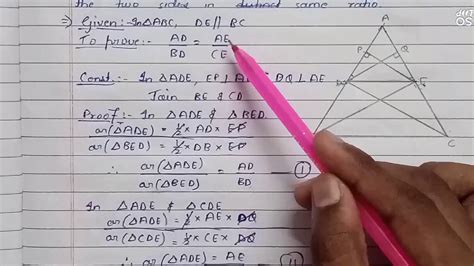 the two sides in distinct same ratio.
⇒) Given:- In ΔABC, DE || BC
To prove:- AD/BD = AE/CE
Const.- In ΔADE, EP ⊥ A DQ ⊥ AE
Join BE & CD
Proof:- In ΔADE & ΔBED
ar(ΔADE) = ½ × AD × EP
ar(ΔBED) = ½ × DB × EP
∴ ar(ΔADE)/ar(ΔBED) = AD/BD —(I)
In ΔADE & ΔCDE
ar(ΔADE) = ½ × AE × DQ
ar(ΔCDE) = ½ × CE × DQ
∴ ar(ΔADE) = AE —(II)
A
P
Q
D
E
C